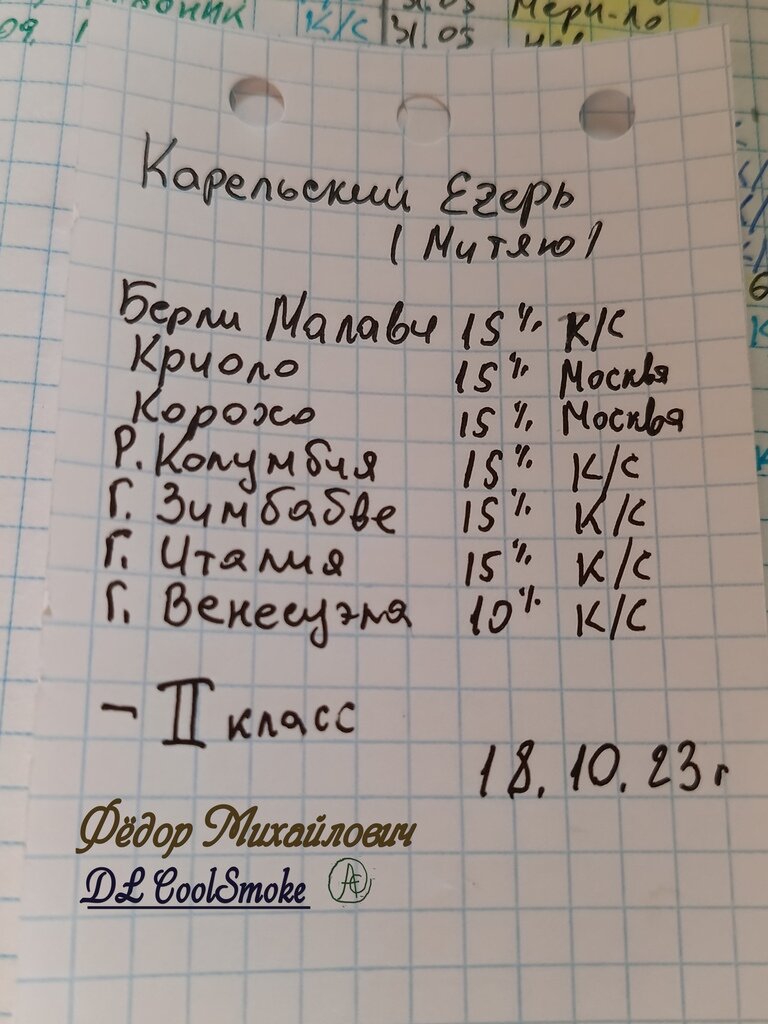 К/С 31.05
09. 1
Карельский Егерь
(Митяю)
Берли Малави 15% К/С
Криоло 15% Москва
Корохо 15% Москва
Р. Колумбия 15% К/С
Г. Зимбабве 15% К/С
Г. Италия 15% К/С
Г. Венесуэла 10% К/С
- II класс
18.10.23 г
Фёдор Михайлович
DL CoolSmoke